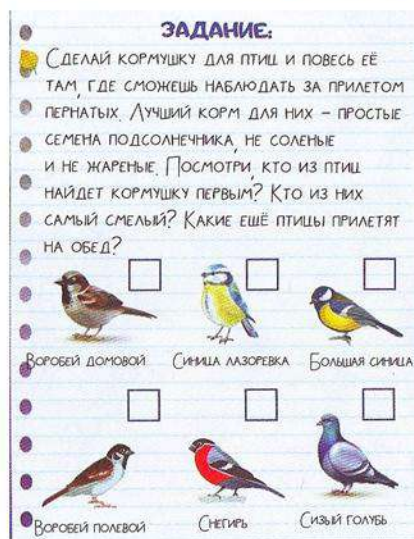 ЗАДАНИЕ:
СДЕЛАЙ КОРМУШКУ ДЛЯ ПТИЦ И ПОВЕСЬ ЕЁ
ТАМ, ГДЕ СМОЖЕШЬ НАБЛЮДАТЬ ЗА ПРИЛЕТОМ
ПЕРНАТЫХ. ЛУЧШИЙ КОРМ ДЛЯ НИХ – ПРОСТЫЕ
СЕМЕНА ПОДСОЛНЕЧНИКА, НЕ СОЛЕНЫЕ
И НЕ ЖАРЕНЫЕ. ПОСМОТРИ, КТО ИЗ ПТИЦ
НАЙДЕТ КОРМУШКУ ПЕРВЫМ? КТО ИЗ НИХ
САМЫЙ СМЕЛЫЙ? КАКИЕ ЕЩЁ ПТИЦЫ ПРИЛЕТЯТ
НА ОБЕД?
ВОРОБЕЙ ДОМОВОЙ СИНИЦА ЛАЗОРЕВКА БОЛЬШАЯ СИНИЦА
ВОРОБЕЙ ПОЛЕВОЙ СНЕГИРЬ СИЗЫЙ ГОЛУБЬ